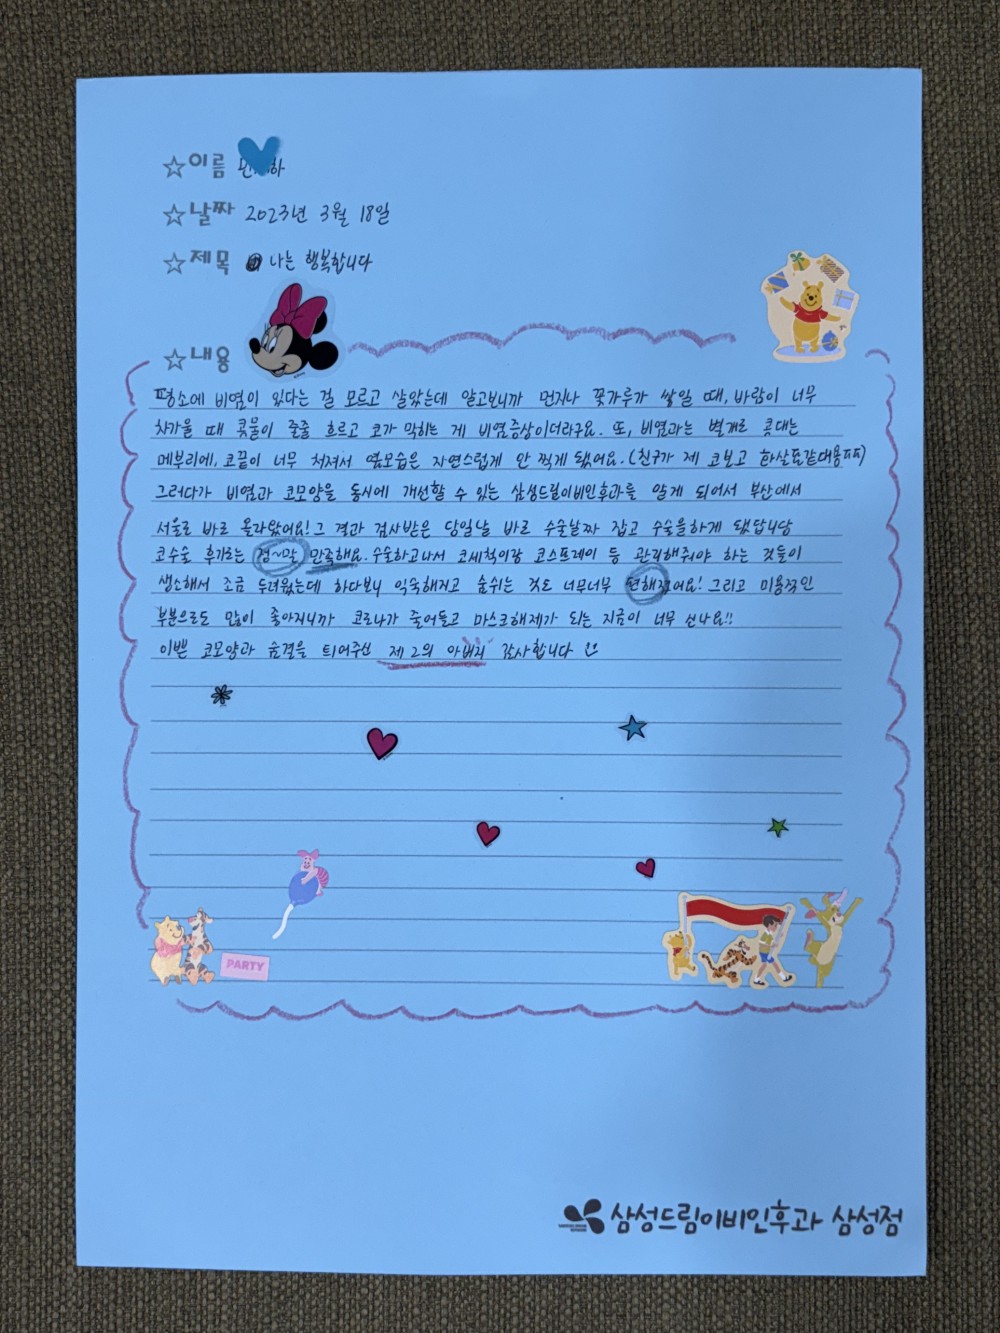 ☆이름
☆날짜 2023년 3월 18일
☆제목 나는 행복합니다
☆내용
평소에 비염이 있다는 걸 모르고 살았는데 알고보니까 먼지나 꽃가루가 쌓일 때, 바람이 너무
차가울 때 콧물이 줄줄 흐르고 코가 막히는 게 비염증상이더라구요. 또, 비염과는 별개로 콧대는
메부리에, 코끝이 너무 처져서 옆모습은 자연스럽게 안 찍게 됐어요. (친구가 제 코보고 화살표같대용ㅠㅠ)
그러다가 비염과 코모양을 동시에 개선할 수 있는 삼성드림이비인후과를 알게 되어서 부산에서
서울로 바로 올라왔어요! 그 결과 검사받은 당일날 바로 수술날짜 잡고 수술을하게 됐답니당
코수술 후기로는 정~말 만족해요. 수술하고나서 코세척이랑 코스프레이 등 관리해줘야 하는 것들이
생소해서 조금 두려웠는데 하다보니 익숙해지고 숨쉬는 것도 너무너무 편해졌어요! 그리고 미용적인
부분으로도 많이 좋아지니까 코로나가 줄어들고 마스크해제가 되는 지금이 너무 신나요!!
이쁜 코모양과 숨결을 틔어주신 제 2의 아버지 감사합니다
PARTY
삼성드림이비인후과 삼성점